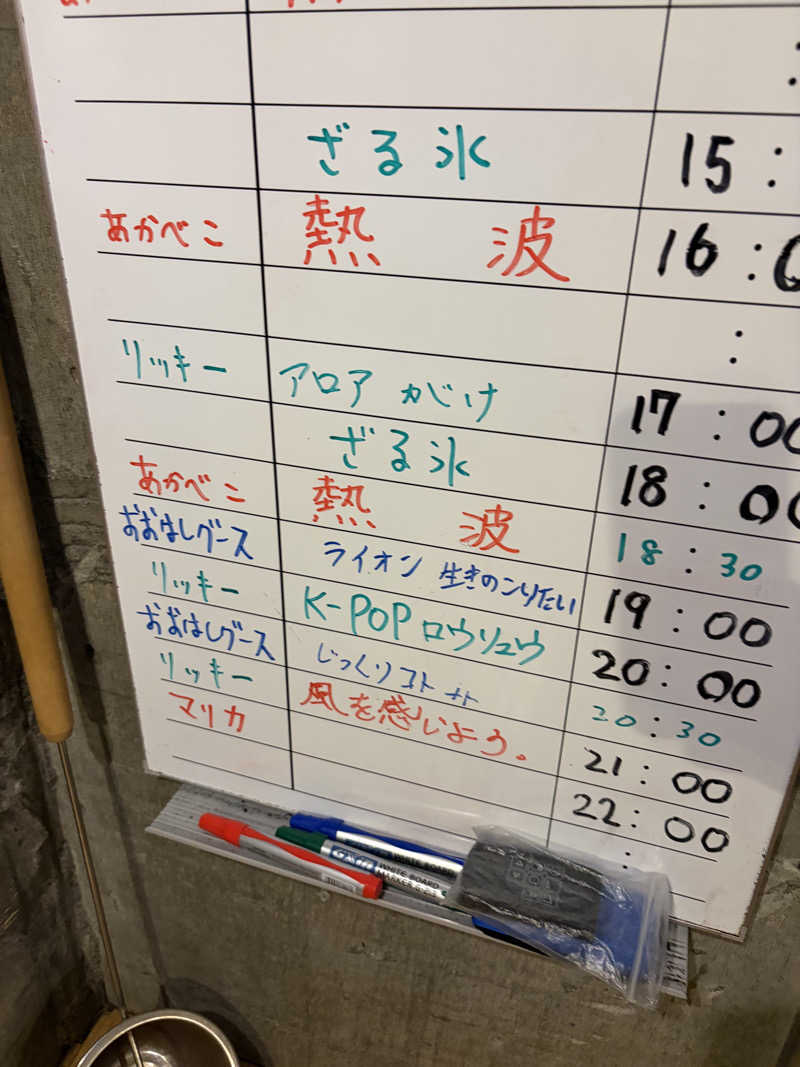 ざる氷 15:
あかべこ 熱 波 16:0
:
リッキー アロア がけ 17:00
ざる氷 18:00
あかべこ 熱 波 18:30
おおはしグース ライオン 生きのこりたい 19:00
リッキー K-POPロウリュウ 20:00
おおはしグース じっくりコト 20:30
リッキー 風を感じよう。 21:00
マリカ 22:00
:
WHITE BOARD MARKER